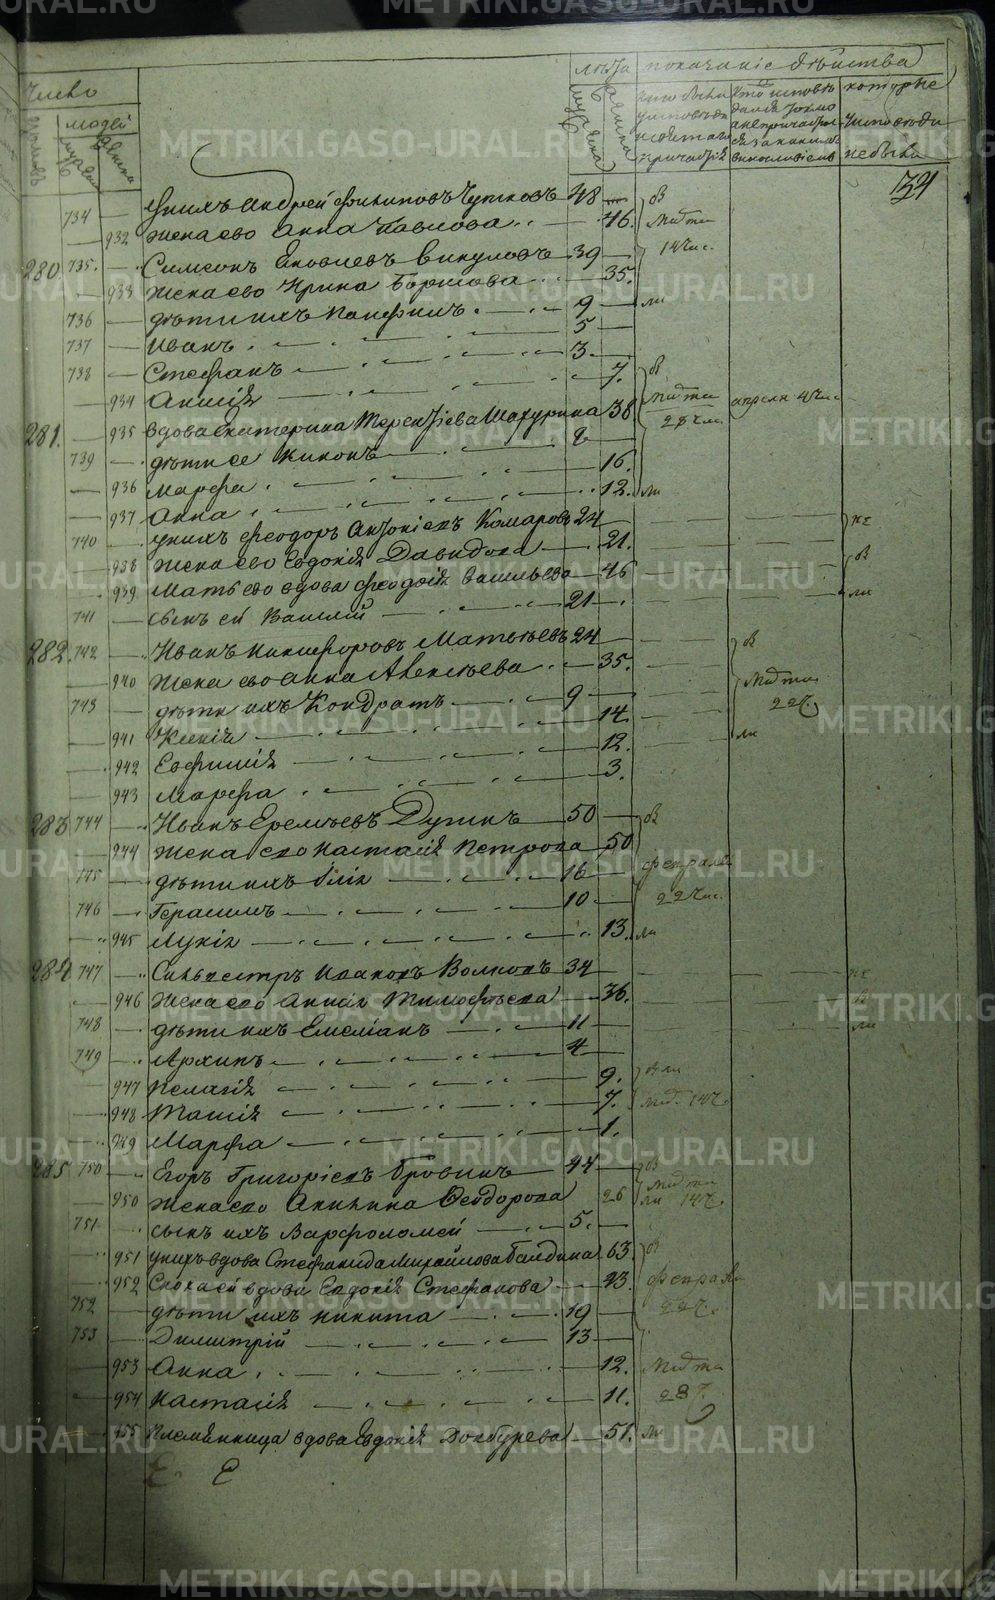 Число лѣта показаніе дѣйства
людей
мужеска женска
кто были у исповѣди и святаго причастія
кто исповѣдался токмо а не причастился и за какимъ винословіемъ
которые у исповѣди не были
34
734 у нихъ Андрей Филиповъ Чупковъ 48
932 жена его Анна Павлова 46. марта 14 чис.
280 735. Симеонъ Яковлевъ Викуловъ 39
933 жена его Ирина Борисова 35.
736 дѣти ихъ Панфилъ 9
737 Иванъ 5
738 Стефанъ 3
934 Анисія 7.
281. 935 вдова Екатерина Терентіева Шахурина 38 марта 28 чис. апреля 4 чис
739 дѣти ее Никонъ 8
936 Марфа 16.
937 Анна 12.
740 у нихъ Феодоръ Антоніевъ Комаровъ 24
938 жена его Евдокія Давидова 21.
939 мать его вдова Феодосія Васильева 46
741 сынъ ей Василій 21
282. 742 Иванъ Никифоровъ Матвѣевъ 24
940 жена его Анна Алексѣева 35.
743 дѣти ихъ Кондратъ 9 марта 22
941 Ксенія 14.
942 Евфимія 12.
943 Марфа 3.
283 744 Иванъ Еремѣевъ Дугинъ 50
944 жена его Настасія Петрова 50
745 дѣти ихъ Илія 16 февраля 22 чис.
746 Герасимъ 10
945 Лукія 13.
284 747 Сильвестръ Ивановъ Волковъ 34
946 жена его Анна Тимофѣева 36.
748 дѣти ихъ Емеліанъ 11
749 Архипъ 4
947 Пелагія 9.
948 Таисія 7.
949 Марфа 1.
285 750 Егоръ Григоріевъ Бровинъ 44
950 жена его Акилина Феодорова 26 марта 14
751 сынъ ихъ Варфоломей 5.
951 у нихъ вдова Стефанида Михайлова Балдина 63.
952 Сноха ей вдова Евдокія Стефанова 43. февраля 22
752 дѣти ихъ Никита 19
753 Димитрій 13
953 Анна 12. марта 28
954 Настасія 11.
955 племянница вдова Евдокія 51.
METRIKI.GASO-URAL.RU